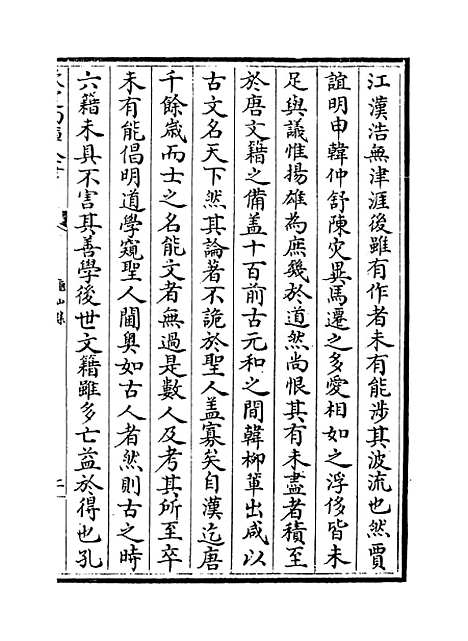 江漢浩無津涯後雖有作者未有能涉其波流也然賈
誼明申韓仲舒陳灾異馬遷之多愛相如之浮侈皆未
足與議惟揚雄為庶幾於道然尚恨其有未盡者積至
於唐文籍之備盖十百前古元和之間韓柳軰出咸以
古文名天下然其論著不詭於聖人盖寡矣自漢迄唐
千餘歲而士之名能文者無過是數人及考其所至卒
未有能倡明道學窺聖人閫奥如古人者然則古之時
六籍未具不害其善學後世文籍雖多亡益於得也孔
龜山集
二